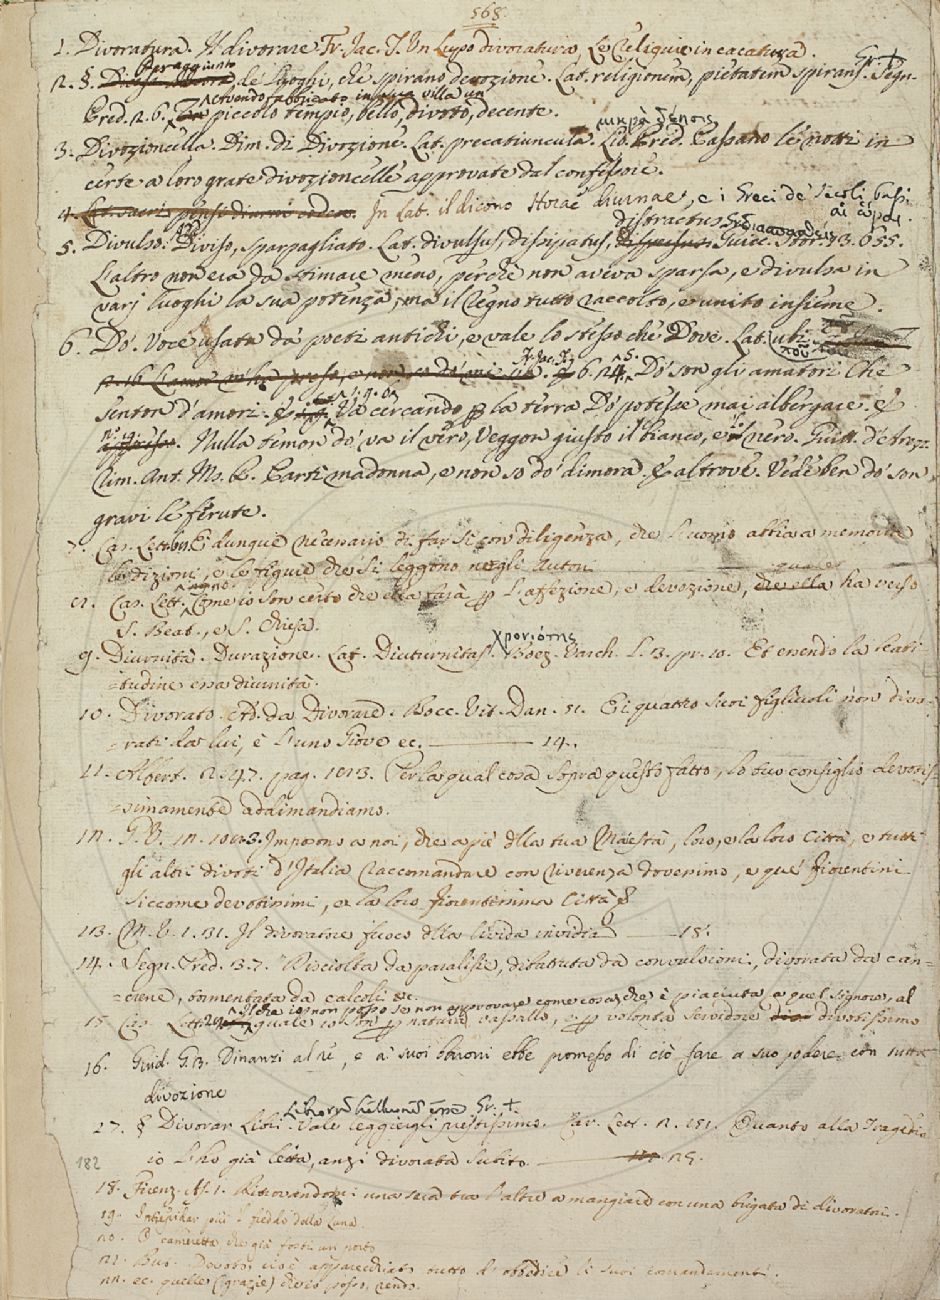 568.
1. Divoratura. Il divorare Fr. Jac. T. In Lupo divoratura, Le Reliquie in cacatura.
Per aggiunto Gr. †
2. §. de' Luoghi, che spirano devozione. Lat. religionem, pietatem spirans. Segn.
Avendo fabbricato in sua villa un
Pred. 2. 6. piccolo tempio, bello, divoto, decente.
μικρὰ δέησις
3. Divozioncella. Dim. di Divozione. Lat. precatiuncula. Lib. Pred. Passano le notti in
certe a loro grate divozioncelle approvate dal confessore.
4. Lat. sacri pensi diurni ordo. In Lat. il dicono Horae diurnae, e i Greci de' secoli bassi
αἱ ὧραι.
distractus Gr.
5. Divulso. Diviso, sparpagliato. Lat. divulsus, dissipatus, Guicc. Stor. 13. 655.
L'altro non era da stimare meno, perchè non aveva sparsa, e divulsa in
varj luoghi la sua potenza, ma il regno tutto raccolto, e unito insieme.
6. Do'. Voce usata da' poeti antichi, e vale lo stesso che Dove. Lat. ubi.
Fr. Jac. T.
6. 24. Do' son gli amatori Che
senton d'amori. Va cercando la terra Do' potesse mai albergare. E
Nulla temon do' va il vero, Veggon giusto il bianco, e il nero. Guitt. d'Arezz.
Rim. Ant. Ms. Parti madonna, e non so do' dimora. E altrove. Vede ben do' son
gravi le ferute.
7. Car. Lett. E dunque necessario di far sì con diligenza, che l'uomo abbia a memoria
le dizioni, e le figure che si leggono negli autori
8. Car. Lett. Come io son certo che ella farà l'affezione, e devozione, che ella ha verso
S. Beat., e S. Chiesa.
χρονιότης
9. Diurnità. Durazione. Lat. Diuturnitas. Boez. Varch. L. 3. pr. 10. Et essendo la beati-
=tudine essa diurnità.
10. Divorato. Ad. da Divorare. Bocc. Vit. Dan. 51. E i quattro suoi figliuoli non divo-
=rati da lui, è l'uno Giove ec. 14.
11. Albert. 2. 47. pag. 1013. Per la qual cosa sopra questo fatto, lo tuo consiglio devotis-
=simamente addimandiamo.
12. G. V. 12. 108. 3. Imposono a noi, che a piè della tua Maestà, loro, e la loro Città, e tutti
gli altri divoti d'Italia raccomandare con riverenza dovessimo, e que' Fiorentini
siccome devotissimi, e la loro fiorentissima Città
113. M. V. 1. 131. Il divoratore fuoco della livida invidia 18.
14. Segn. Pred. 13. 7. Disciolta da paralisie, dibattuta da convulsioni, divorata da can-
=crene, tormentata da calcoli ec.
il che io non posso se non approvare come cosa, che è piaciuta a quel signore, al
15. Car. Lett. quale io son natural vassallo, e volontà servidore divotissimo
16. Guid. G. B. Dinanzi al re, e a' suoi baroni ebbe promesso di ciò fare a suo podere con tutta
divozione
Librorum helluonem esse Gr. †
17. § Divorar Libri. Vale leggergli prestissimo. Car. Lett. 2. 151. Quanto alla Tragedia
182
io l'ho già letta, anzi divorata subito. 25.
18. Firenz. As. 1. Ritrovandomi una sera tra l'altre a mangiare con una brigata di divoratori.
19. Intiepidar più 'l freddo della Luna.
20. O cameretta che già fosti un porto
21. But. Devoto; cioè apparecchiato tutto ad obbedire li suoi comandamenti.
22. ec. quelle (grazie) ch'io posso, rendo.